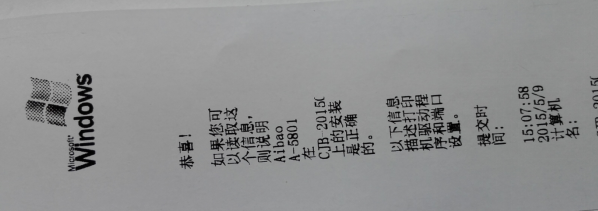 Microsoft
Windows
恭喜!
如果您可
以读取这
个信息,
则说明
Aibao
A-5801
在
CJB-2015(
上的安装
是正确
的。
以下信息
描述打印
机驱动程
序和端口
设置。
提交时
间:
15:07:58
2015/5/9
计算机
名: